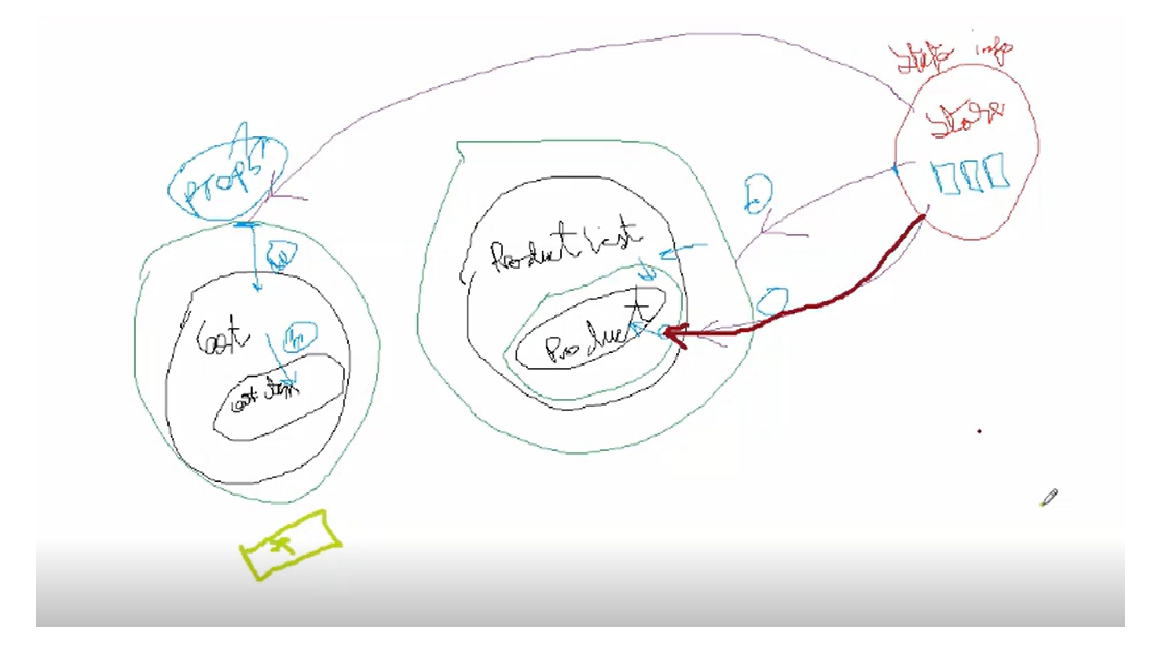 State info
Store
Props
Product List
Product
Cart
Cart Item